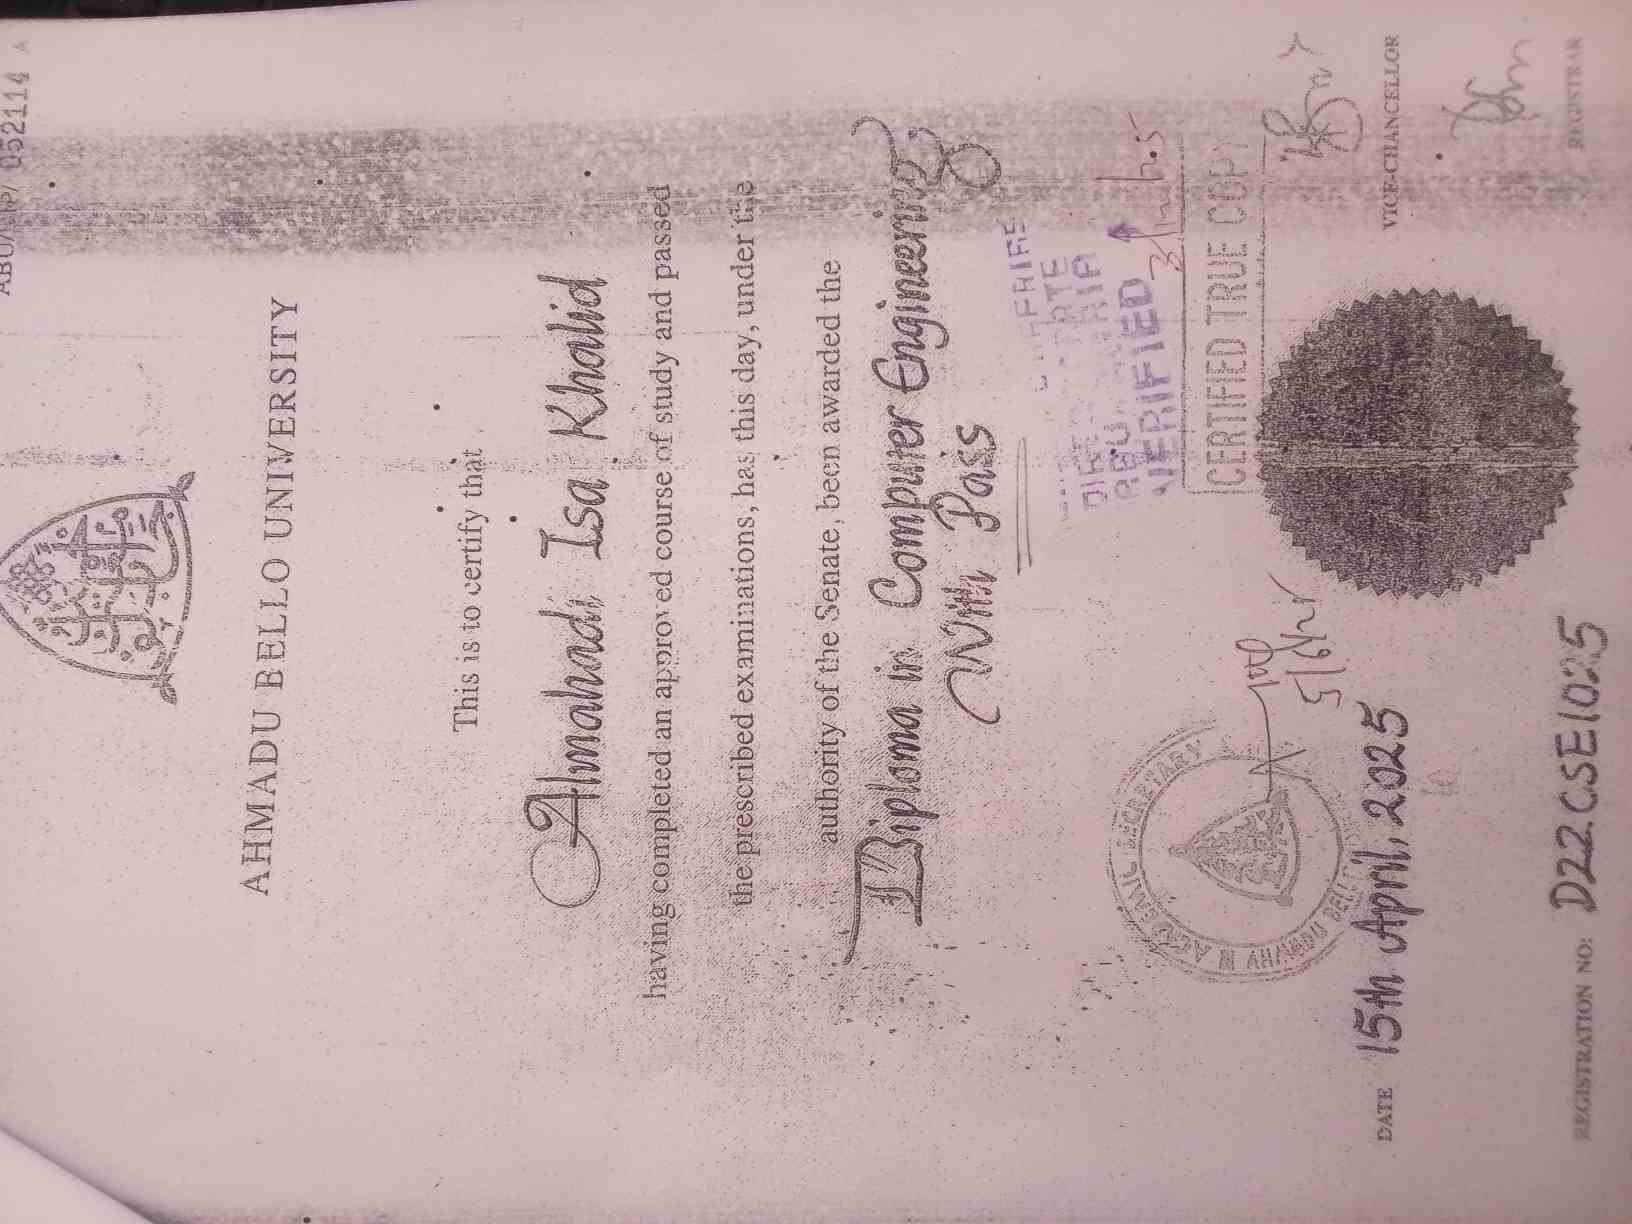 052114 A
AHMADU BELLO UNIVERSITY
This is to certify that
Almahadi Isa Khalid
having completed an approved course of study and passed
the prescribed examinations, has this day, under the
authority of the Senate, been awarded the
Diploma in Computer Engineering
With Pass
VERIFIED
CERTIFIED TRUE COPY
SECRETARY
AHMADU BELLO
DATE 15th April, 2025
VICE-CHANCELLOR
REGISTRATION NO: D22CSE1025
REGISTRAR